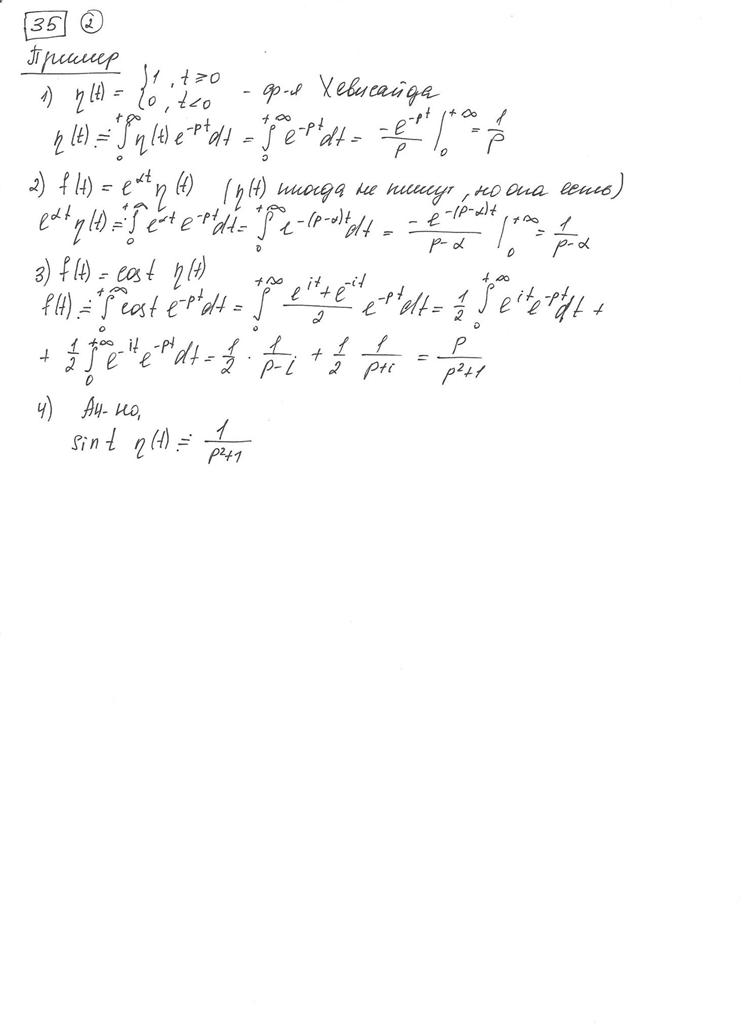 35 ②
Пример
1) η(t) = { 1, t ≥ 0 ; 0, t < 0 - ф-я Хевисайда
η(t) ≓ ∫₀^{+∞} η(t) e^{-pt} dt = ∫₀^{+∞} e^{-pt} dt = -e^{-pt}/p |₀^{+∞} = 1/p
2) f(t) = e^{αt} η(t) (η(t) иногда не пишут, но она есть)
e^{αt} η(t) ≓ ∫₀^{+∞} e^{αt} e^{-pt} dt = ∫₀^{+∞} e^{-(p-α)t} dt = -e^{-(p-α)t}/(p-α) |₀^{+∞} = 1/(p-α)
3) f(t) = cos t η(t)
f(t) ≓ ∫₀^{+∞} cos t e^{-pt} dt = ∫₀^{+∞} (e^{it} + e^{-it})/2 e^{-pt} dt = 1/2 ∫₀^{+∞} e^{it} e^{-pt} dt +
+ 1/2 ∫₀^{+∞} e^{-it} e^{-pt} dt = 1/2 · 1/(p-i) + 1/2 1/(p+i) = p/(p²+1)
4) Ан-но,
sin t η(t) ≓ 1/(p²+1)